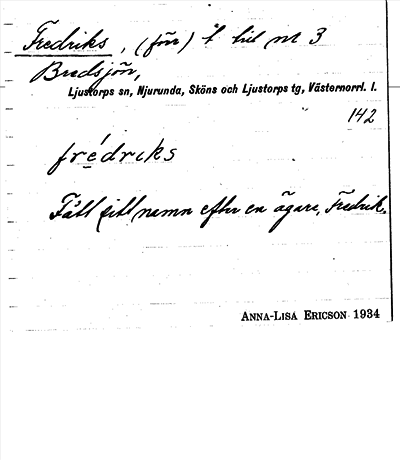 Fredriks, (förr) t. till nr 3
Bredsjön,
Ljustorps sn, Njurunda, Sköns och Ljustorps tg, Västernorrl. l.
142
frédriks
Fått sitt namn efter en ägare, Fredrik.
ANNA-LISA ERICSON 1934